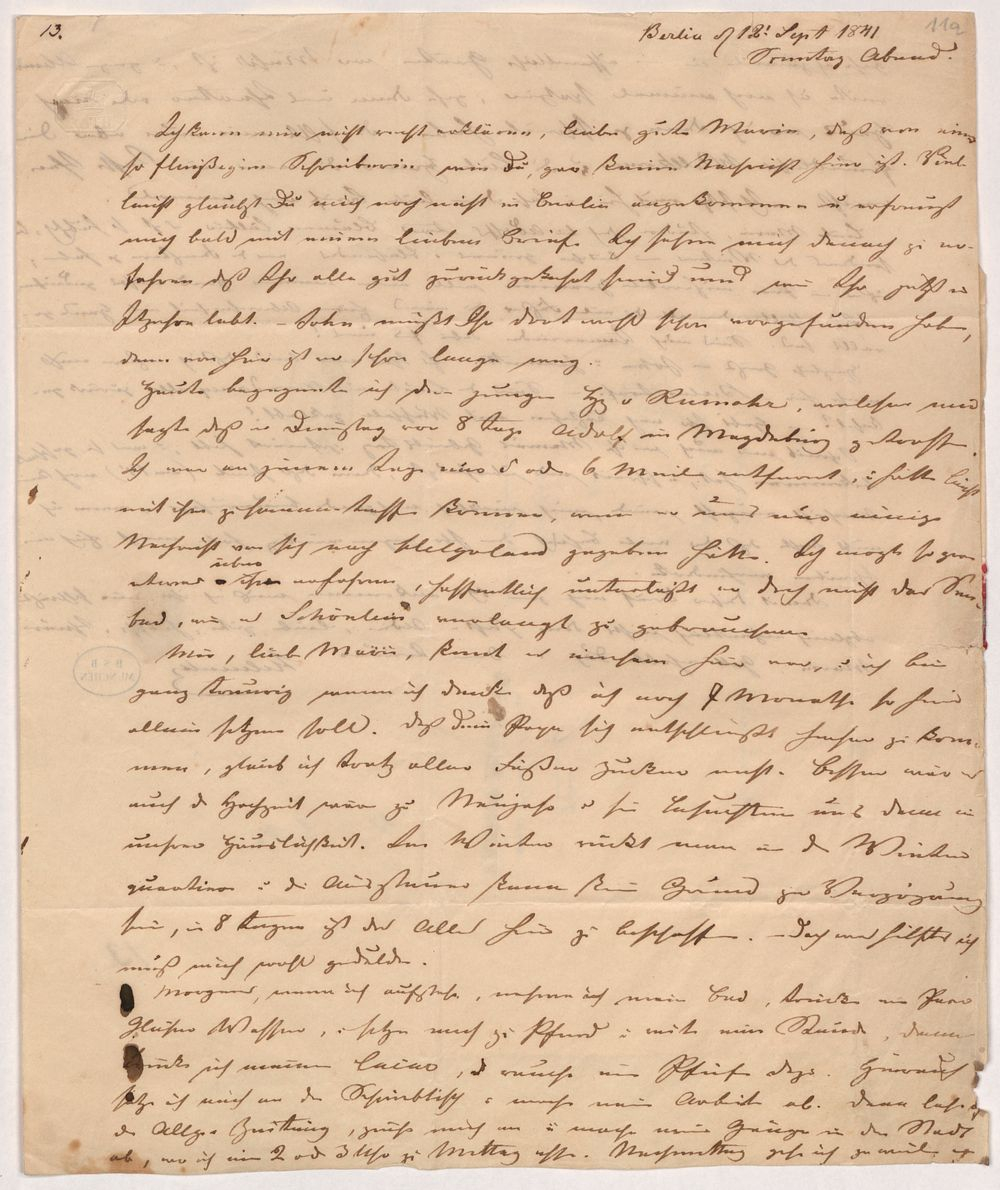 13.
Berlin d 12t Sept 1841
Sonntag Abend.
119
Ich kann mir nicht recht erklären, liebe gute Marie, daß von einer
so fleißigen Schreiberin wie Du, gar keine Nachricht hier ist. Viel-
leicht glaubst Du mich noch nicht in Berlin angekommen u erfreust
mich bald mit einem lieben Brief. Ich sehne mich danach zu er-
fahren daß Ihr alle gut zurückgekehrt seid und wie Ihr jetzt in
Itzehoe lebt. – John müßt Ihr dort wohl schon vorgefunden haben,
denn von hier ist er schon lange weg.
Heute begegnete ich dem jungen H v Rumohr, welcher mir
sagte daß er Dienstag vor 8 Tage Adolf in Magdeburg getroffen.
Ich war an jenem Tage nur 5 oder 6 Meilen entfernt, u hätte leicht
mit ihm zusammentreffen können, wenn er uns nur einige
Nachricht von sich nach Helgoland gegeben hätte. Ich mögte so gern
etwas über ihn erfahren, hoffentlich unterläßt er doch nicht das See-
bad, wie es Schönlein verlangt zu gebrauchen.
Mir, liebe Marie, kommt es einsam hier vor, u ich bin
ganz traurig wenn ich denke daß ich noch 7 Monathe so hier
allein sitzen soll. Daß dein Papa sich entschließt herher zu kom-
men, glaub ich trotz aller Füßen zucken nicht. Besser wär es
auch die Hochzeit wär zu Neujahr u sie besuchten uns dann in
unsrer Häuslichkeit. Im Winter rückt man in die Winter
quartiere u die Aussteuer kann kein Grund zur Verzögerung
sein, in 8 Tagen ist das Alles hier zu beschaffen. – Doch was hilfts ich
muß mich wohl gedulden.
Morgens, wenn ich aufstehe, nehme ich mein Bad, trinke ein Paar
Gläser Wasser, u setze mich zu Pferd u reite eine Stunde, dann
trinke ich meinen Cacao, u rauche eine Pfeife dazu. Hierauf
setze ich mich an den Schreibtisch u mache meine Arbeit ab. Dann lese ich
die Allge. Zeitung, ziehe mich an u mache meine Gänge in der Stadt
ab, wo ich um 2 od 3 Uhr zu Mittag esse. Nachmittag gehe ich zuweilen
B.S.B.
MÜNCHEN